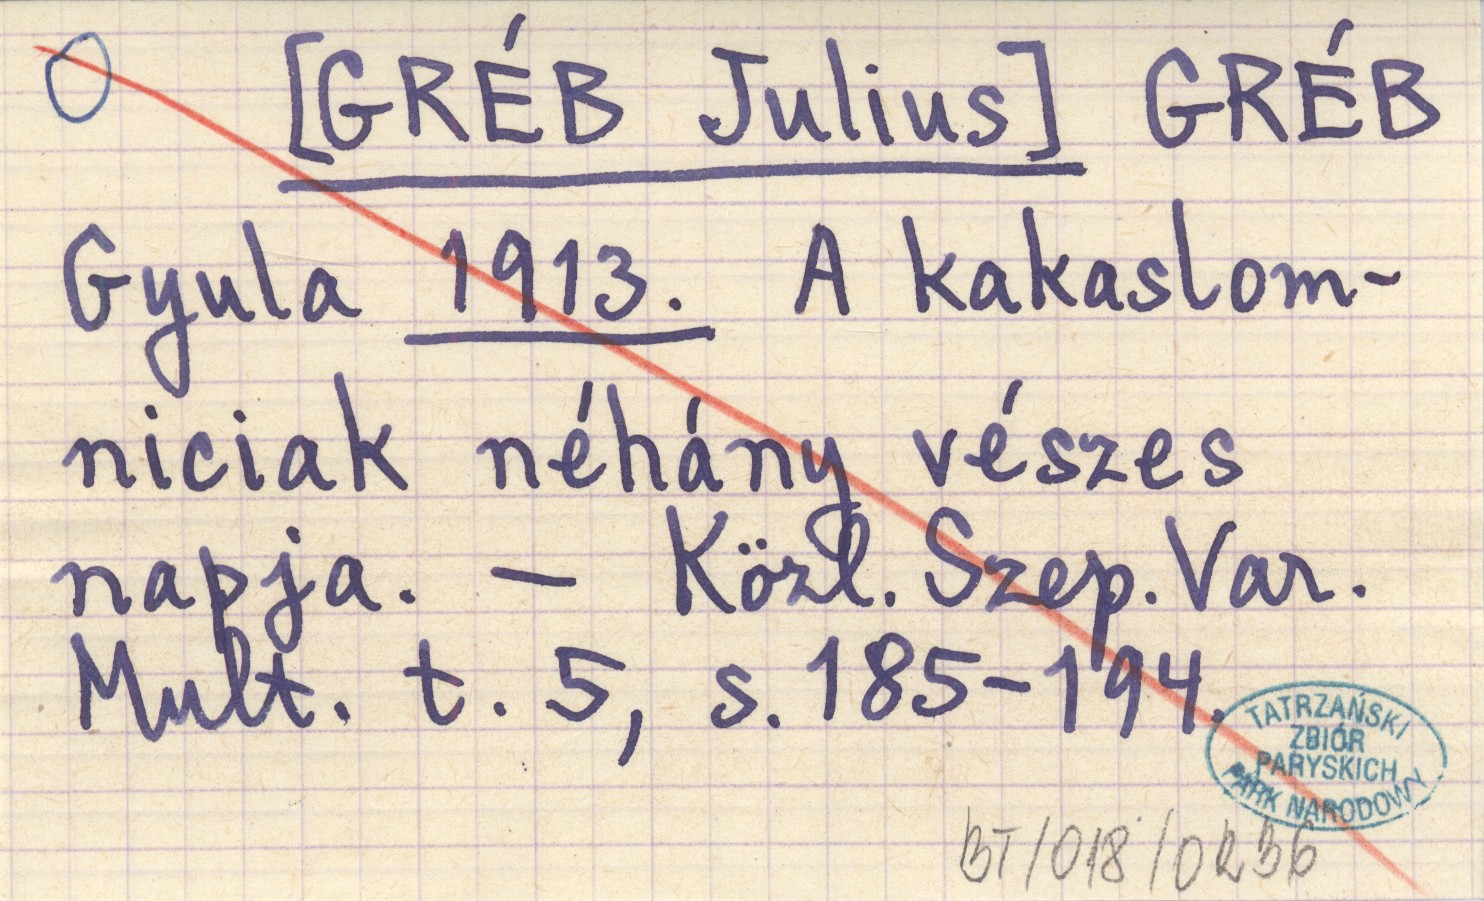 [GRÉB Julius] GRÉB
Gyula 1913. A kakaslom-
niciak néhány vészes
napja. — Közl. Szep. Var.
Mult. t. 5, s. 185-194.
TATRZAŃSKI
ZBIÓR
PARYSKICH
PARK NARODOWY
BT/018/0236